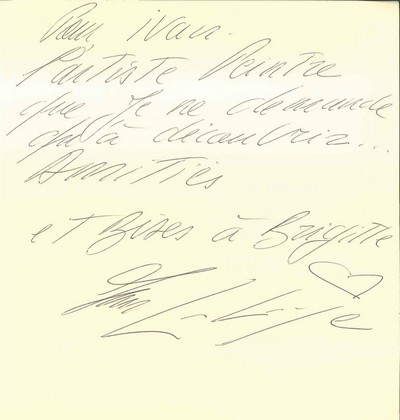 Pour ivan.
l'artiste Peintre
que je ne demande
qu'à découvrir...
Amitiés
et Bises à Brigitte